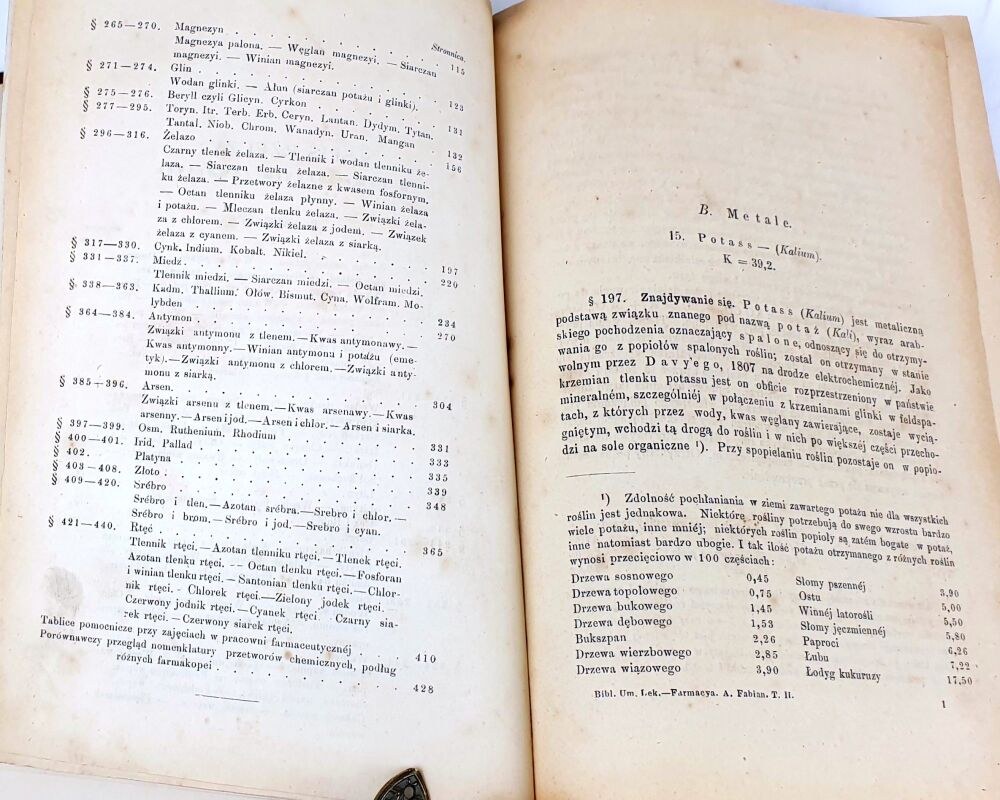 Stronnica.
§ 265—270. Magnezyn . . . . . . . . . . 115
Magnezya palona. — Węglan magnezyi. — Siarczan
magnezyi. — Winian magnezyi.
§ 271—274. Glin . . . . . . . . . . 123
Wodan glinki. — Ałun (siarczan potażu i glinki).
§ 275—276. Beryll czyli Glicyn. Cyrkon . . . . . . 131
§ 277—295. Toryn. Itr. Terb. Erb. Ceryn. Lantan. Dydym. Tytan.
Tantal. Niob. Chrom. Wanadyn. Uran. Mangan . 132
§ 296—316. Żelazo . . . . . . . . . . 156
Czarny tlenek żelaza. — Tlennik i wodan tlenniku że-
laza. — Siarczan tlenku żelaza. — Siarczan tlenni-
ku żelaza. — Przetwory żelazne z kwasem fosfornym.
— Octan tlenniku żelaza płynny. — Winian żelaza
i potażu. — Mleczan tlenku żelaza. — Związki żela-
za z chlorem. — Związki żelaza z jodem. — Związek
żelaza z cyanem. — Związki żelaza z siarką.
§ 317—330. Cynk. Indium. Kobalt. Nikiel. . . . . . 197
§ 331—337. Miedź . . . . . . . . . . 220
Tlennik miedzi. — Siarczan miedzi. — Octan miedzi.
§ 338—363. Kadm. Thallium. Ołów. Bismut. Cyna. Wolfram. Mo-
lybden . . . . . . . . . . 234
§ 364—384. Antymon . . . . . . . . . . 270
Związki antymonu z tlenem. — Kwas antymonawy. —
Kwas antymonny. — Winian antymonu i potażu (eme-
tyk). — Związki antymonu z chlorem. — Związki anty-
monu z siarką.
§ 385—396. Arsen. . . . . . . . . . . 304
Związki arsenu z tlenem. — Kwas arsenawy. — Kwas
arsenny. — Arsen i jod. — Arsen i chlor. — Arsen i siarka.
§ 397—399. Osm. Ruthenium. Rhodium . . . . . . 331
§ 400—401. Irid, Pallad . . . . . . . . . 333
§ 402. Platyna . . . . . . . . . . 335
§ 403—408. Złoto . . . . . . . . . . 339
§ 409—420. Srébro . . . . . . . . . . 348
Srébro i tlen. — Azotan srébra. — Srebro i chlor. —
Srébro i brom. — Srébro i jod. — Srebro i cyan.
§ 421—440. Rtęć . . . . . . . . . . 365
Tlennik rtęci. — Azotan tlenniku rtęci. — Tlenek rtęci.
Azotan tlenku rtęci. — Octan tlenku rtęci. — Fosforan
i winian tlenku rtęci. — Santonian tlenku rtęci. — Chlor-
nik rtęci. — Chlorek rtęci. — Zielony jodek rtęci.
Czerwony jodnik rtęci. — Cyanek rtęci. Czarny sia-
rek rtęci. — Czerwony siarek rtęci.
Tablice pomocnicze przy zajęciach w pracowni farmaceutycznéj . . 410
Porównawczy przegląd nomenklatury przetworów chemicznych, podług
różnych farmakopei . . . . . . . . 428
B. Metale.
15. Potass — (Kalium).
K = 39,2.
§ 197. Znajdywanie się. Potass (Kalium) jest metaliczną
podstawą związku znanego pod nazwą potaż (Kali), wyraz arab-
skiego pochodzenia oznaczający spalone, odnoszący się do otrzymy-
wania go z popiołów spalonych roślin; został on otrzymany w stanie
wolnym przez Davy'ego, 1807 na drodze elektrochemicznéj. Jako
krzemian tlenku potassu jest on obficie rozprzestrzeniony w państwie
mineralném, szczególniéj w połączeniu z krzemianami glinki w feldspa-
tach, z których przez wody, kwas węglany zawierające, zostaje wycią-
gniętym, wchodzi tą drogą do roślin i w nich po większéj części przecho-
dzi na sole organiczne ¹). Przy spopielaniu roślin pozostaje on w popio-
¹) Zdolność pochłaniania w ziemi zawartego potażu nie dla wszystkich
roślin jest jednakowa. Niektóre rośliny potrzebują do swego wzrostu bardzo
wiele potażu, inne mniéj; niektórych roślin popioły są zatém bogate w potaż,
inne natomiast bardzo ubogie. I tak ilość potażu otrzymanego z różnych roślin
wynosi przecięciowo w 100 częściach:
Drzewa sosnowego 0,45 Słomy pszennéj 3,90
Drzewa topolowego 0,75 Ostu 5,00
Drzewa bukowego 1,45 Winnéj latorośli 5,50
Drzewa dębowego 1,53 Słomy jęczmiennéj 5,80
Bukszpan 2,26 Paproci 6,26
Drzewa wierzbowego 2,85 Łubu 7,22
Drzewa wiązowego 3,90 Łodyg kukuruzy 17,50
Bibl. Um. Lek.—Farmacya. A. Fabian. T. II.
1